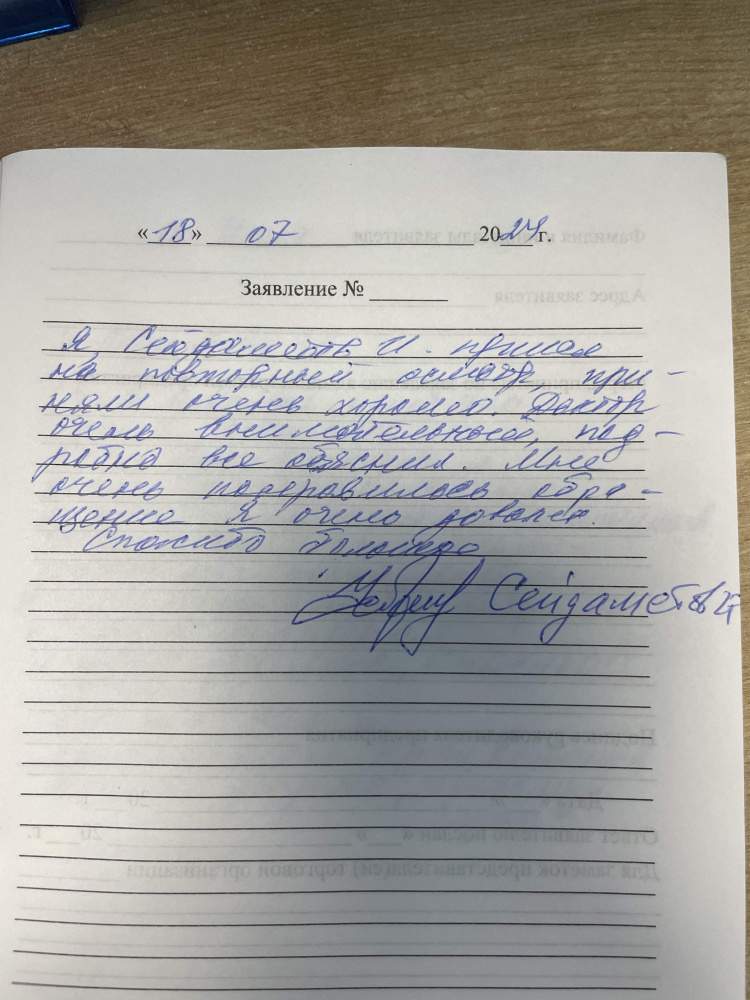 «18» 07 2024 г.
Заявление №
Я Сейдаметов И. пришел
на повторный осмотр при-
няли очень хорошо. Доктор
очень внимательный, под-
робно все обяснил. Мне
очень подеравилось обра-
щение Я очень доволен.
Спасибо большое
Сейдаметов И